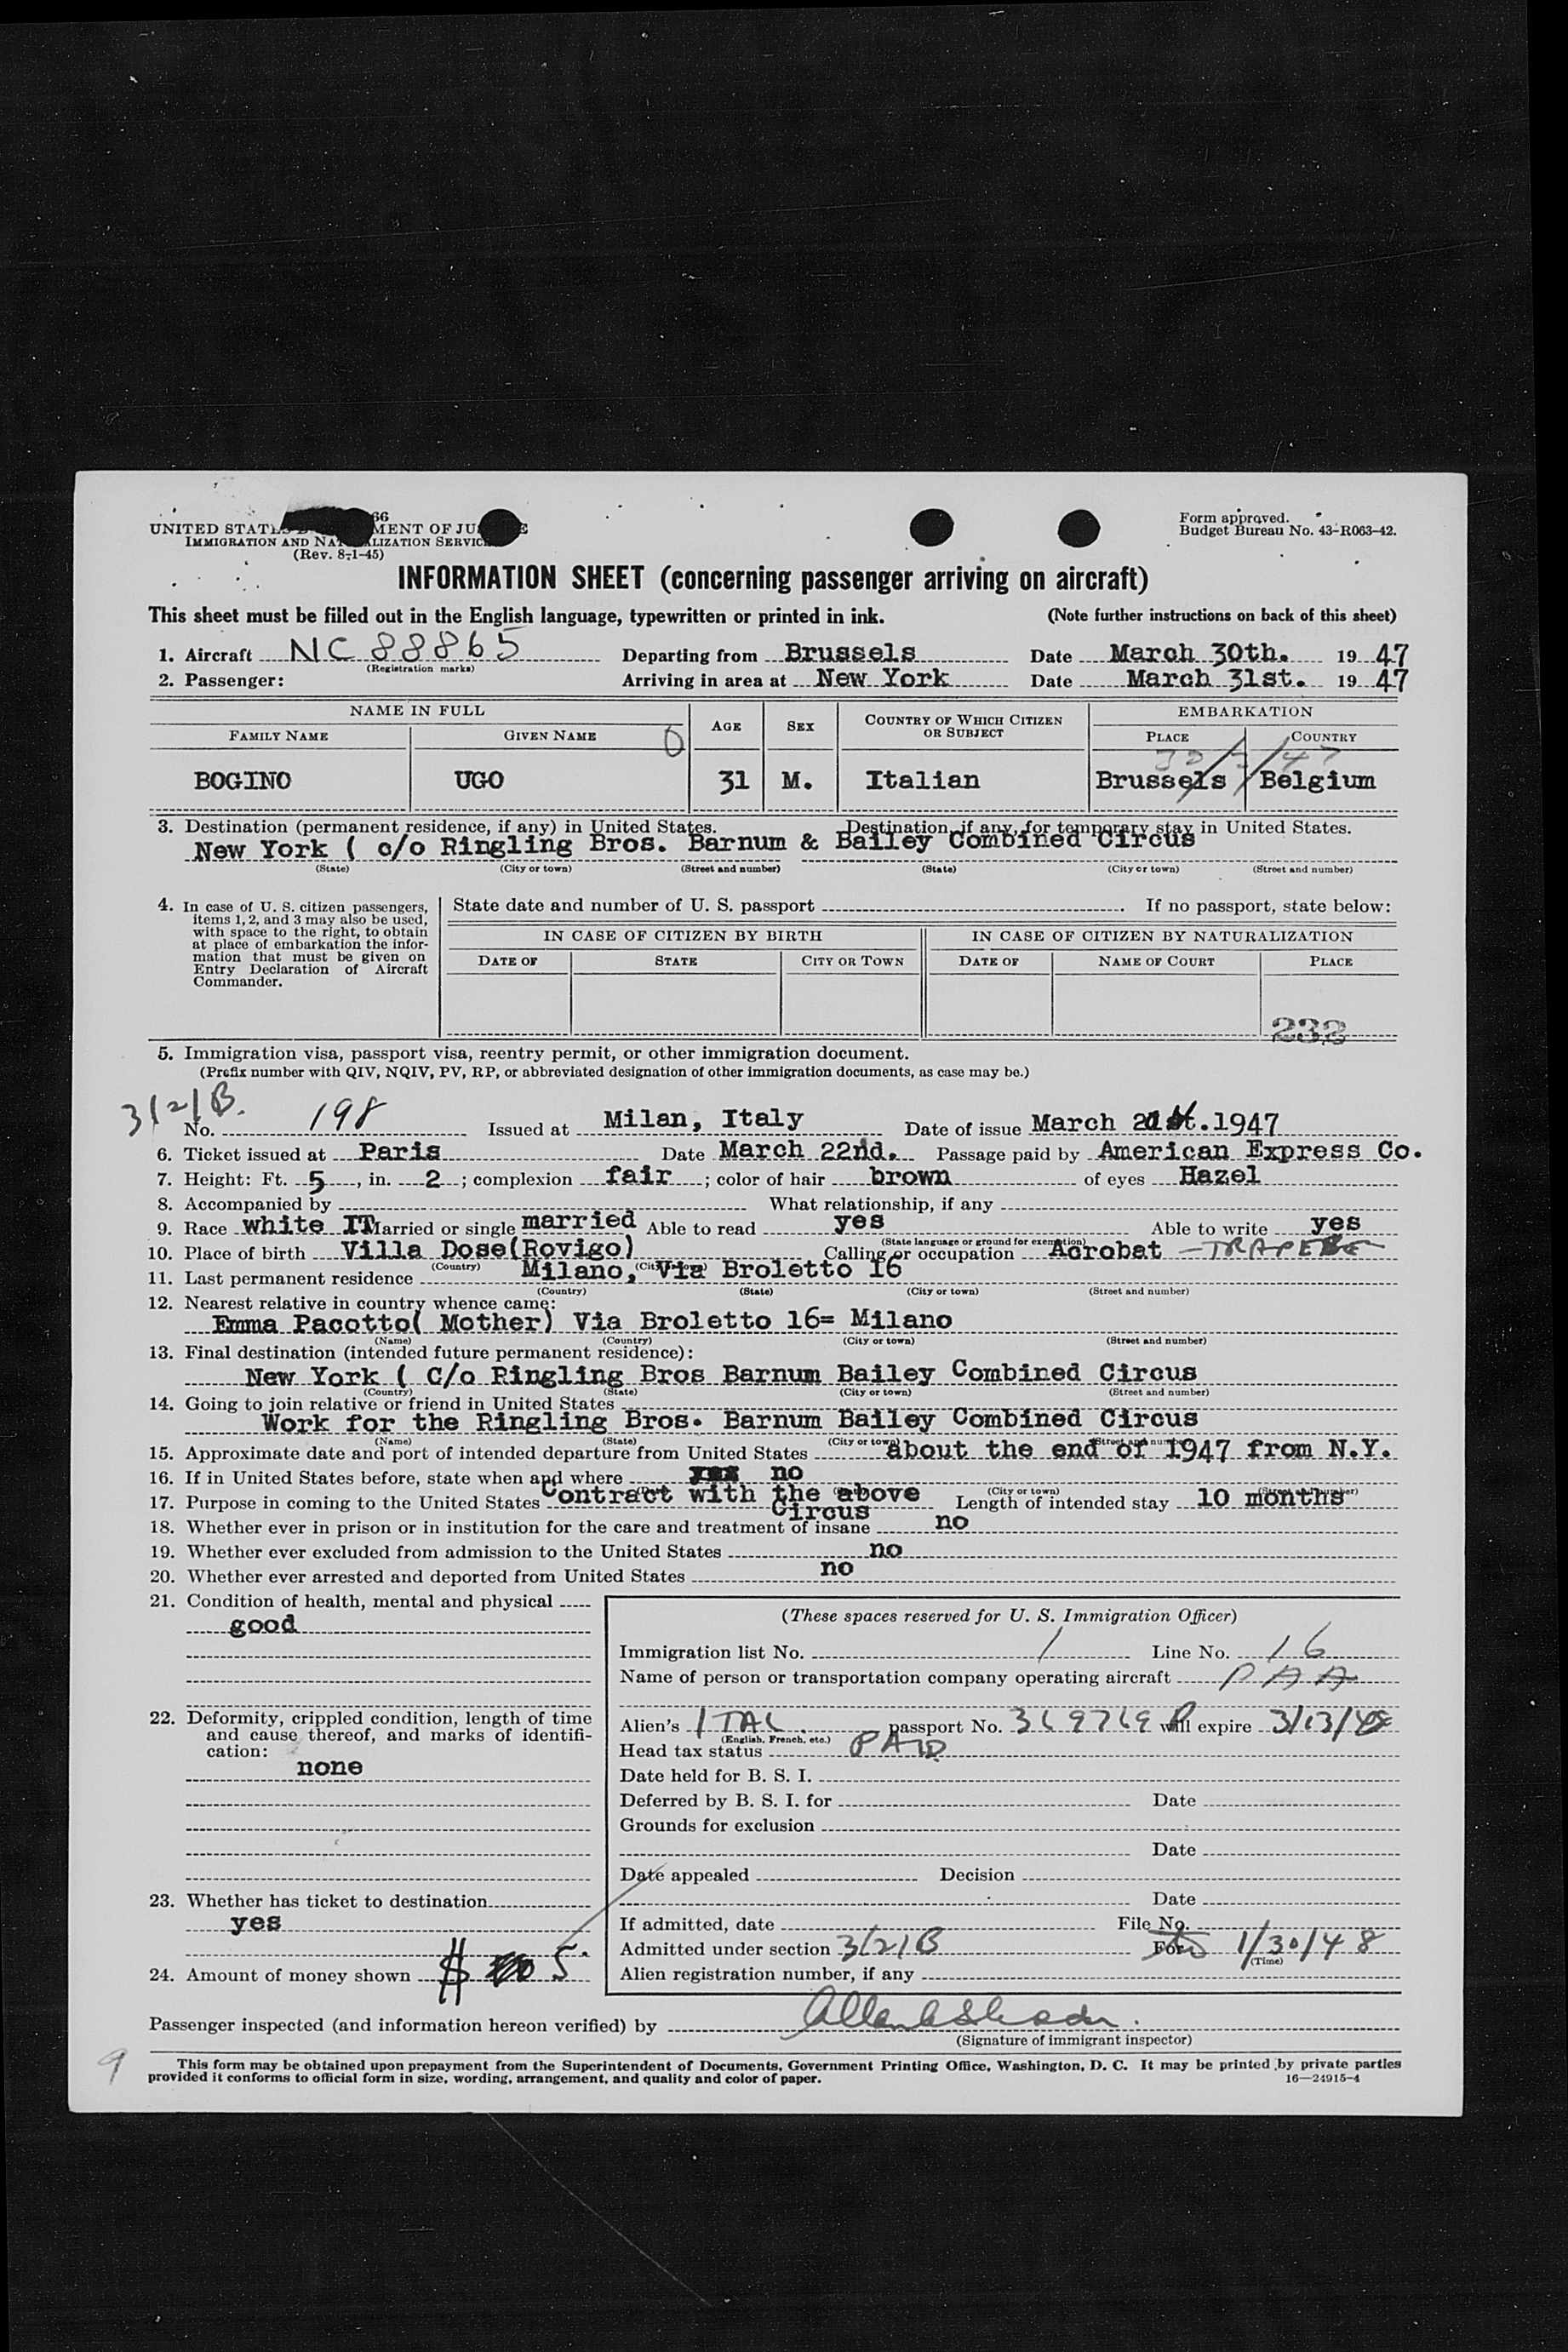 66
UNITED STATES DEPARTMENT OF JUSTICE
IMMIGRATION AND NATURALIZATION SERVICE
(Rev. 8-1-45)
Form approved.
Budget Bureau No. 43-R063-42.
INFORMATION SHEET (concerning passenger arriving on aircraft)
This sheet must be filled out in the English language, typewritten or printed in ink. (Note further instructions on back of this sheet)
1. Aircraft NC 88865 Departing from Brussels Date March 30th. 19 47
(Registration marks)
2. Passenger: Arriving in area at New York Date March 31st. 19 47
NAME IN FULL AGE SEX COUNTRY OF WHICH CITIZEN OR SUBJECT EMBARKATION
FAMILY NAME GIVEN NAME PLACE COUNTRY
BOGINO UGO 31 M. Italian Brussels Belgium
3. Destination (permanent residence, if any) in United States. Destination, if any, for temporary stay in United States.
New York ( c/o Ringling Bros. Barnum & Bailey Combined Circus
(State) (City or town) (Street and number) (State) (City or town) (Street and number)
4. In case of U. S. citizen passengers, items 1, 2, and 3 may also be used, with space to the right, to obtain at place of embarkation the information that must be given on Entry Declaration of Aircraft Commander.
State date and number of U. S. passport If no passport, state below:
IN CASE OF CITIZEN BY BIRTH IN CASE OF CITIZEN BY NATURALIZATION
DATE OF STATE CITY OR TOWN DATE OF NAME OF COURT PLACE
5. Immigration visa, passport visa, reentry permit, or other immigration document.
(Prefix number with QIV, NQIV, PV, RP, or abbreviated designation of other immigration documents, as case may be.)
3/2/B.
No. 198 Issued at Milan, Italy Date of issue March 21st. 1947
6. Ticket issued at Paris Date March 22nd. Passage paid by American Express Co.
7. Height: Ft. 5, in. 2; complexion fair; color of hair brown of eyes Hazel
8. Accompanied by What relationship, if any
9. Race white IT Married or single married Able to read yes Able to write yes
(State language or ground for exemption)
10. Place of birth Villa Dose(Rovigo) Calling or occupation Acrobat - TRAPEZE
(Country)
11. Last permanent residence Milano, Via Broletto 16
(Country) (State) (City or town) (Street and number)
12. Nearest relative in country whence came:
Emma Pacotto( Mother) Via Broletto 16= Milano
(Name) (Country) (City or town) (Street and number)
13. Final destination (intended future permanent residence):
New York ( C/o Ringling Bros Barnum Bailey Combined Circus
(Country) (State) (City or town) (Street and number)
14. Going to join relative or friend in United States
Work for the Ringling Bros. Barnum Bailey Combined Circus
(Name) (State) (City or town) (Street and number)
15. Approximate date and port of intended departure from United States about the end of 1947 from N.Y.
16. If in United States before, state when and where no
(City or town) (Street and number)
17. Purpose in coming to the United States Contract with the above Circus Length of intended stay 10 months
18. Whether ever in prison or in institution for the care and treatment of insane no
19. Whether ever excluded from admission to the United States no
20. Whether ever arrested and deported from United States no
21. Condition of health, mental and physical
good
22. Deformity, crippled condition, length of time and cause thereof, and marks of identification:
none
23. Whether has ticket to destination
yes
24. Amount of money shown $ 5.
(These spaces reserved for U. S. Immigration Officer)
Immigration list No. 1 Line No. 16
Name of person or transportation company operating aircraft PAA
Alien's ITAL. passport No. 369769 P will expire 3/13/48
(English, French, etc.)
Head tax status PAID
Date held for B. S. I.
Deferred by B. S. I. for Date
Grounds for exclusion
Date
Date appealed Decision
Date
If admitted, date File No.
Admitted under section 3/2/B For 1/30/48
(Time)
Alien registration number, if any
Passenger inspected (and information hereon verified) by
(Signature of immigrant inspector)
9
This form may be obtained upon prepayment from the Superintendent of Documents, Government Printing Office, Washington, D. C. It may be printed by private parties
provided it conforms to official form in size, wording, arrangement, and quality and color of paper. 16—24915-4